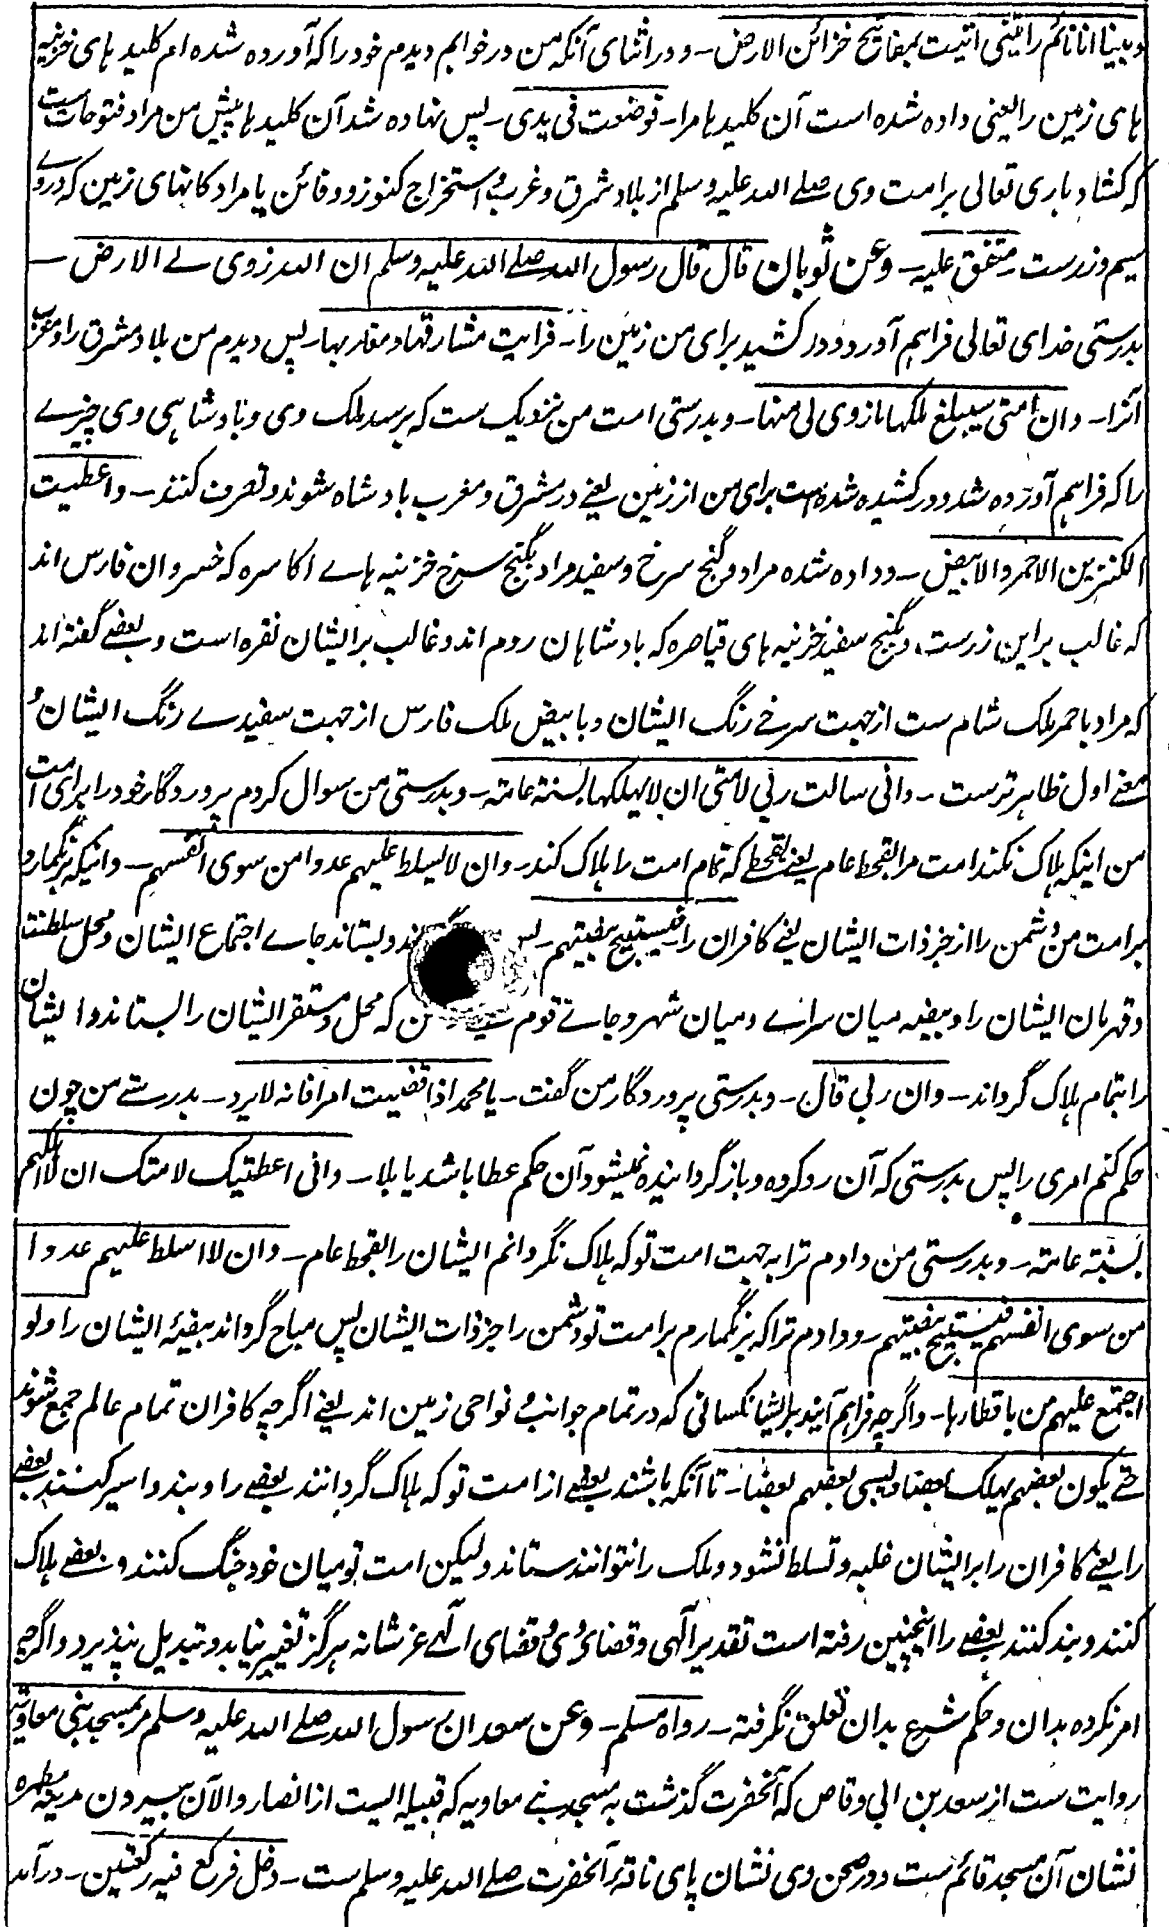 وبینا انا نائم رائیتنی اتیت بمفاتیح خزائن الارض ـ و در اثنای آنکه من در خوابم دیدم خود را که آورده شده ام کلید های خزینه
های زمین را یعنی داده شده است آن کلید ها مرا ـ فوضعت فی یدی ـ پس نهاده شد آن کلید ها پیش من مراد فتوحات ست
که کشاد باری تعالی بر امت وی صلے الله علیه وسلم از بلاد شرق و غرب و استخراج کنوز و دفائن یا مراد کانهای زمین که در وے
سیم و زرست ـ متفق علیه ـ وعن ثوبان قال قال رسول الله صلے الله علیه وسلم ان الله زوی لے الارض ـ
بدرستی خدای تعالی فراهم آورد و در کشید برای من زمین را ـ فرایت مشارقها ومغاربها ـ پس دیدم من بلاد مشرق را و مغرب
آنرا ـ وان امتی سیبلغ ملکها ما زوی لی منها ـ و بدرستی امت من نزدیک ست که برسد ملک وی و بادشاهی وی چیزے
را که فراهم آورده شد و در کشیده شده است برای من از زمین یعنے در مشرق و مغرب بادشاه شوند و تصرف کنند ـ واعطیت
الکنزین الاحمر والابیض ـ و داده شده مرا دو گنج سرخ و سفید مراد بگنج سرخ خزینه هاے اکاسره که خسروان فارس اند
که غالب بر این زرست و بگنج سفید خزینه های قیاصره که بادشاهان روم اند و غالب بر ایشان نقره است و بعضے گفته اند
که مراد باحمر ملک شام ست از جهت سرخے رنگ ایشان و بابیض ملک فارس از جهت سفیدے رنگ ایشان و
معنے اول ظاهر ترست ـ وانی سالت ربی لامتی ان لا یهلکها بسنة عامة ـ و بدرستی من سوال کردم پروردگار خود را برای امت
من اینکه هلاک نکند امت مرا بقحط عام یعنے بقحطے که تمام امت را هلاک کند ـ وان لا یسلط علیهم عدوا من سوی انفسهم ـ و اینکه بر نگمارد
بر امت من دشمن را از جز ذات ایشان یعنے کافران را ـ فیستبیح بیضتهم ـ پس ند و بستاند جاے اجتماع ایشان و محل سلطنت
و قهرمان ایشان را و بیضه میان سراے و میان شهر و جاے قوم که محل و مستقر ایشان را بستاند و ایشان
را بتمام هلاک گرداند ـ وان ربی قال ـ و بدرستی پروردگار من گفت ـ یا محمد اذا قضیت امرا فانه لا یرد ـ بدرستے من چون
حکم کنم امری را پس بدرستی که آن رد کرده و باز گردانیده نمیشود آن حکم عطا باشد یا بلا ـ وانی اعطیتک لامتک ان لا اهلکهم
بسنة عامة ـ و بدرستی من دادم ترا به جهت امت تو که هلاک نگردانم ایشان را بقحط عام ـ وان لا اسلط علیهم عدوا
من سوی انفسهم فیستبیح بیضتهم ـ و دادم ترا که بر نگمارم بر امت تو دشمن را جز ذات ایشان پس مباح گرداند بیضهٔ ایشان را ولو
اجتمع علیهم من باقطارها ـ و اگرچه فراهم آیند بر ایشان کسانی که در تمام جوانب و نواحی زمین اند یعنے اگر چه کافران تمام عالم جمع شوند
حتے یکون بعضهم یهلک بعضا ویسبی بعضهم بعضا ـ تا آنکه باشند بعضے از امت تو که هلاک گردانند بعضے را و بند و اسیر کنند بعضے
را یعنے کافران را بر ایشان غلبه و تسلط نشود و ملک را نتوانند ستاند و لیکن امت تو میان خود جنگ کنند و بعضے هلاک
کنند و بند کنند بعضے را اینچنین رفته است تقدیر الٰهی و قضای وی و قضای الٰهے عز شانه هرگز تغییر نیابد و تبدیل نپذیرد و اگرچه
امر نکرده بدان و حکم شرع بدان تعلق نگرفته ـ رواه مسلم ـ وعن سعد ان رسول الله صلے الله علیه وسلم مر بمسجد بنی معاویة
روایت ست از سعد بن ابی وقاص که آنحضرت گذشت به مسجد بنے معاویه که قبیله ایست از انصار و الآن بیرون مدینه مطهره
نشان آن مسجد قائم ست و در صحن وی نشان پای ناقهٔ آنحضرت صلے الله علیه وسلم ست ـ دخل فرکع فیه رکعتین ـ در آمد